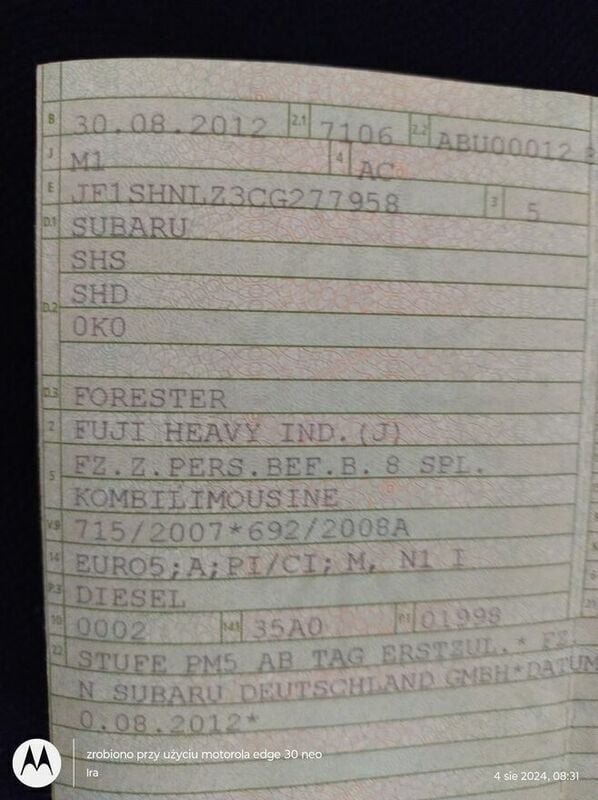 B 30.08.2012 2.1 7106 2.2 ABU00012
J M1 4 AC
E JF1SHNLZ3CG277958 3 5
D.1 SUBARU
SHS
D.2 SHD
0K0
D.3 FORESTER
2 FUJI HEAVY IND.(J)
5 FZ.Z.PERS.BEF.B. 8 SPL.
KOMBILIMOUSINE
V.9 715/2007*692/2008A
14 EURO5;A;PI/CI; M, N1 I
P.3 DIESEL
10 0002 14.1 35A0 P.1 01998
22 STUFE PM5 AB TAG ERSTZUL.* FZ.
N SUBARU DEUTSCHLAND GMBH*DATUM
0.08.2012*
zrobiono przy użyciu motorola edge 30 neo
Ira
4 sie 2024, 08:31